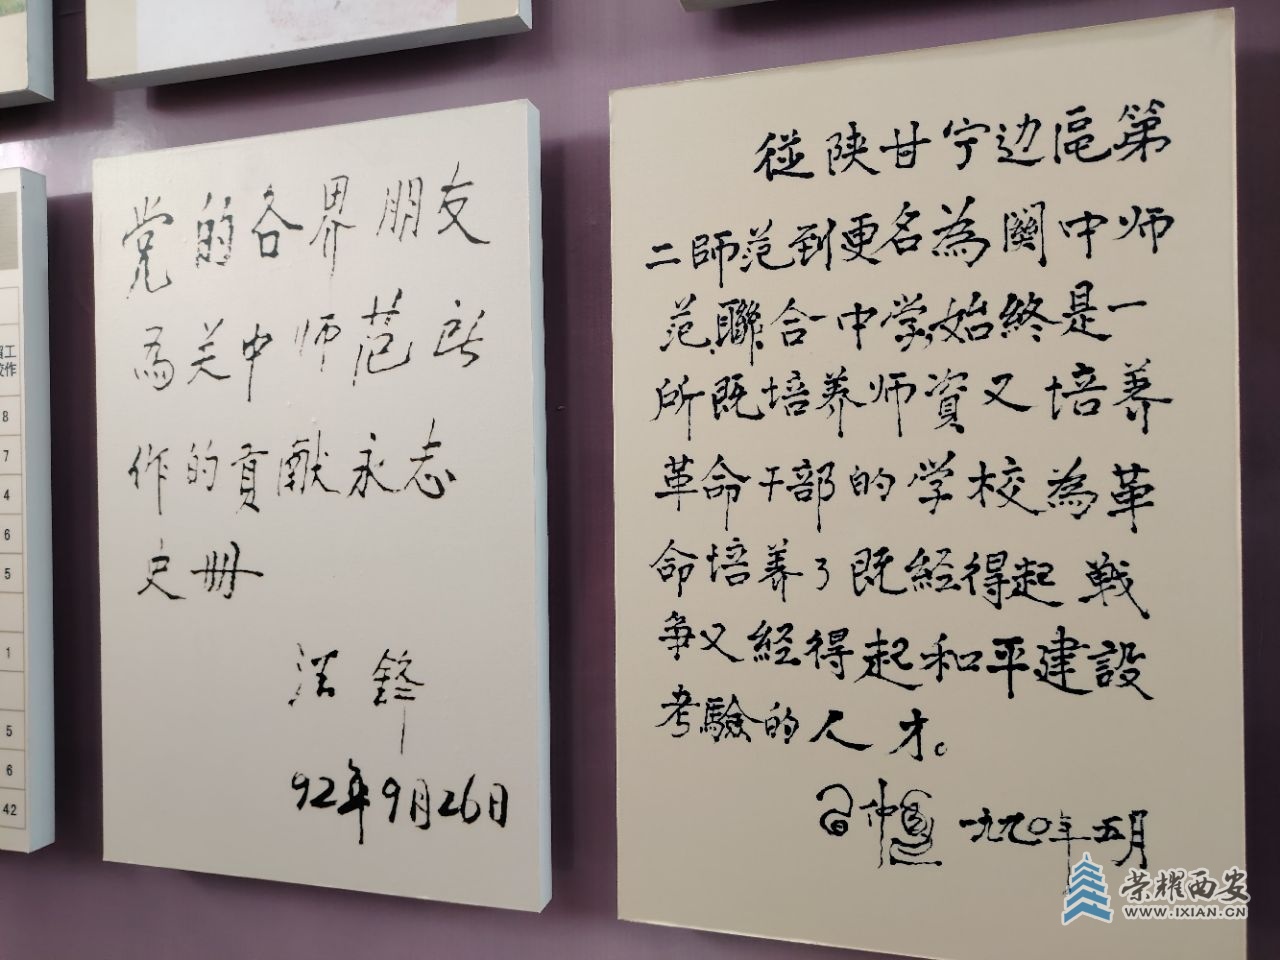 党的各界朋友
为关中师范所
作的貢献永志
史册
汪鋒
92年9月26日
從陕甘宁边區第
二師范到更名為関中师
范聯合中学始終是一
所既培养师資又培养
革命干部的学校為革
命培养了既經得起戦
争又經得起和平建設
考驗的人才。
習仲勛 一九九〇年五月
工
作
8
7
4
6
5
1
5
6
42
荣耀西安
WWW.IXIAN.CN